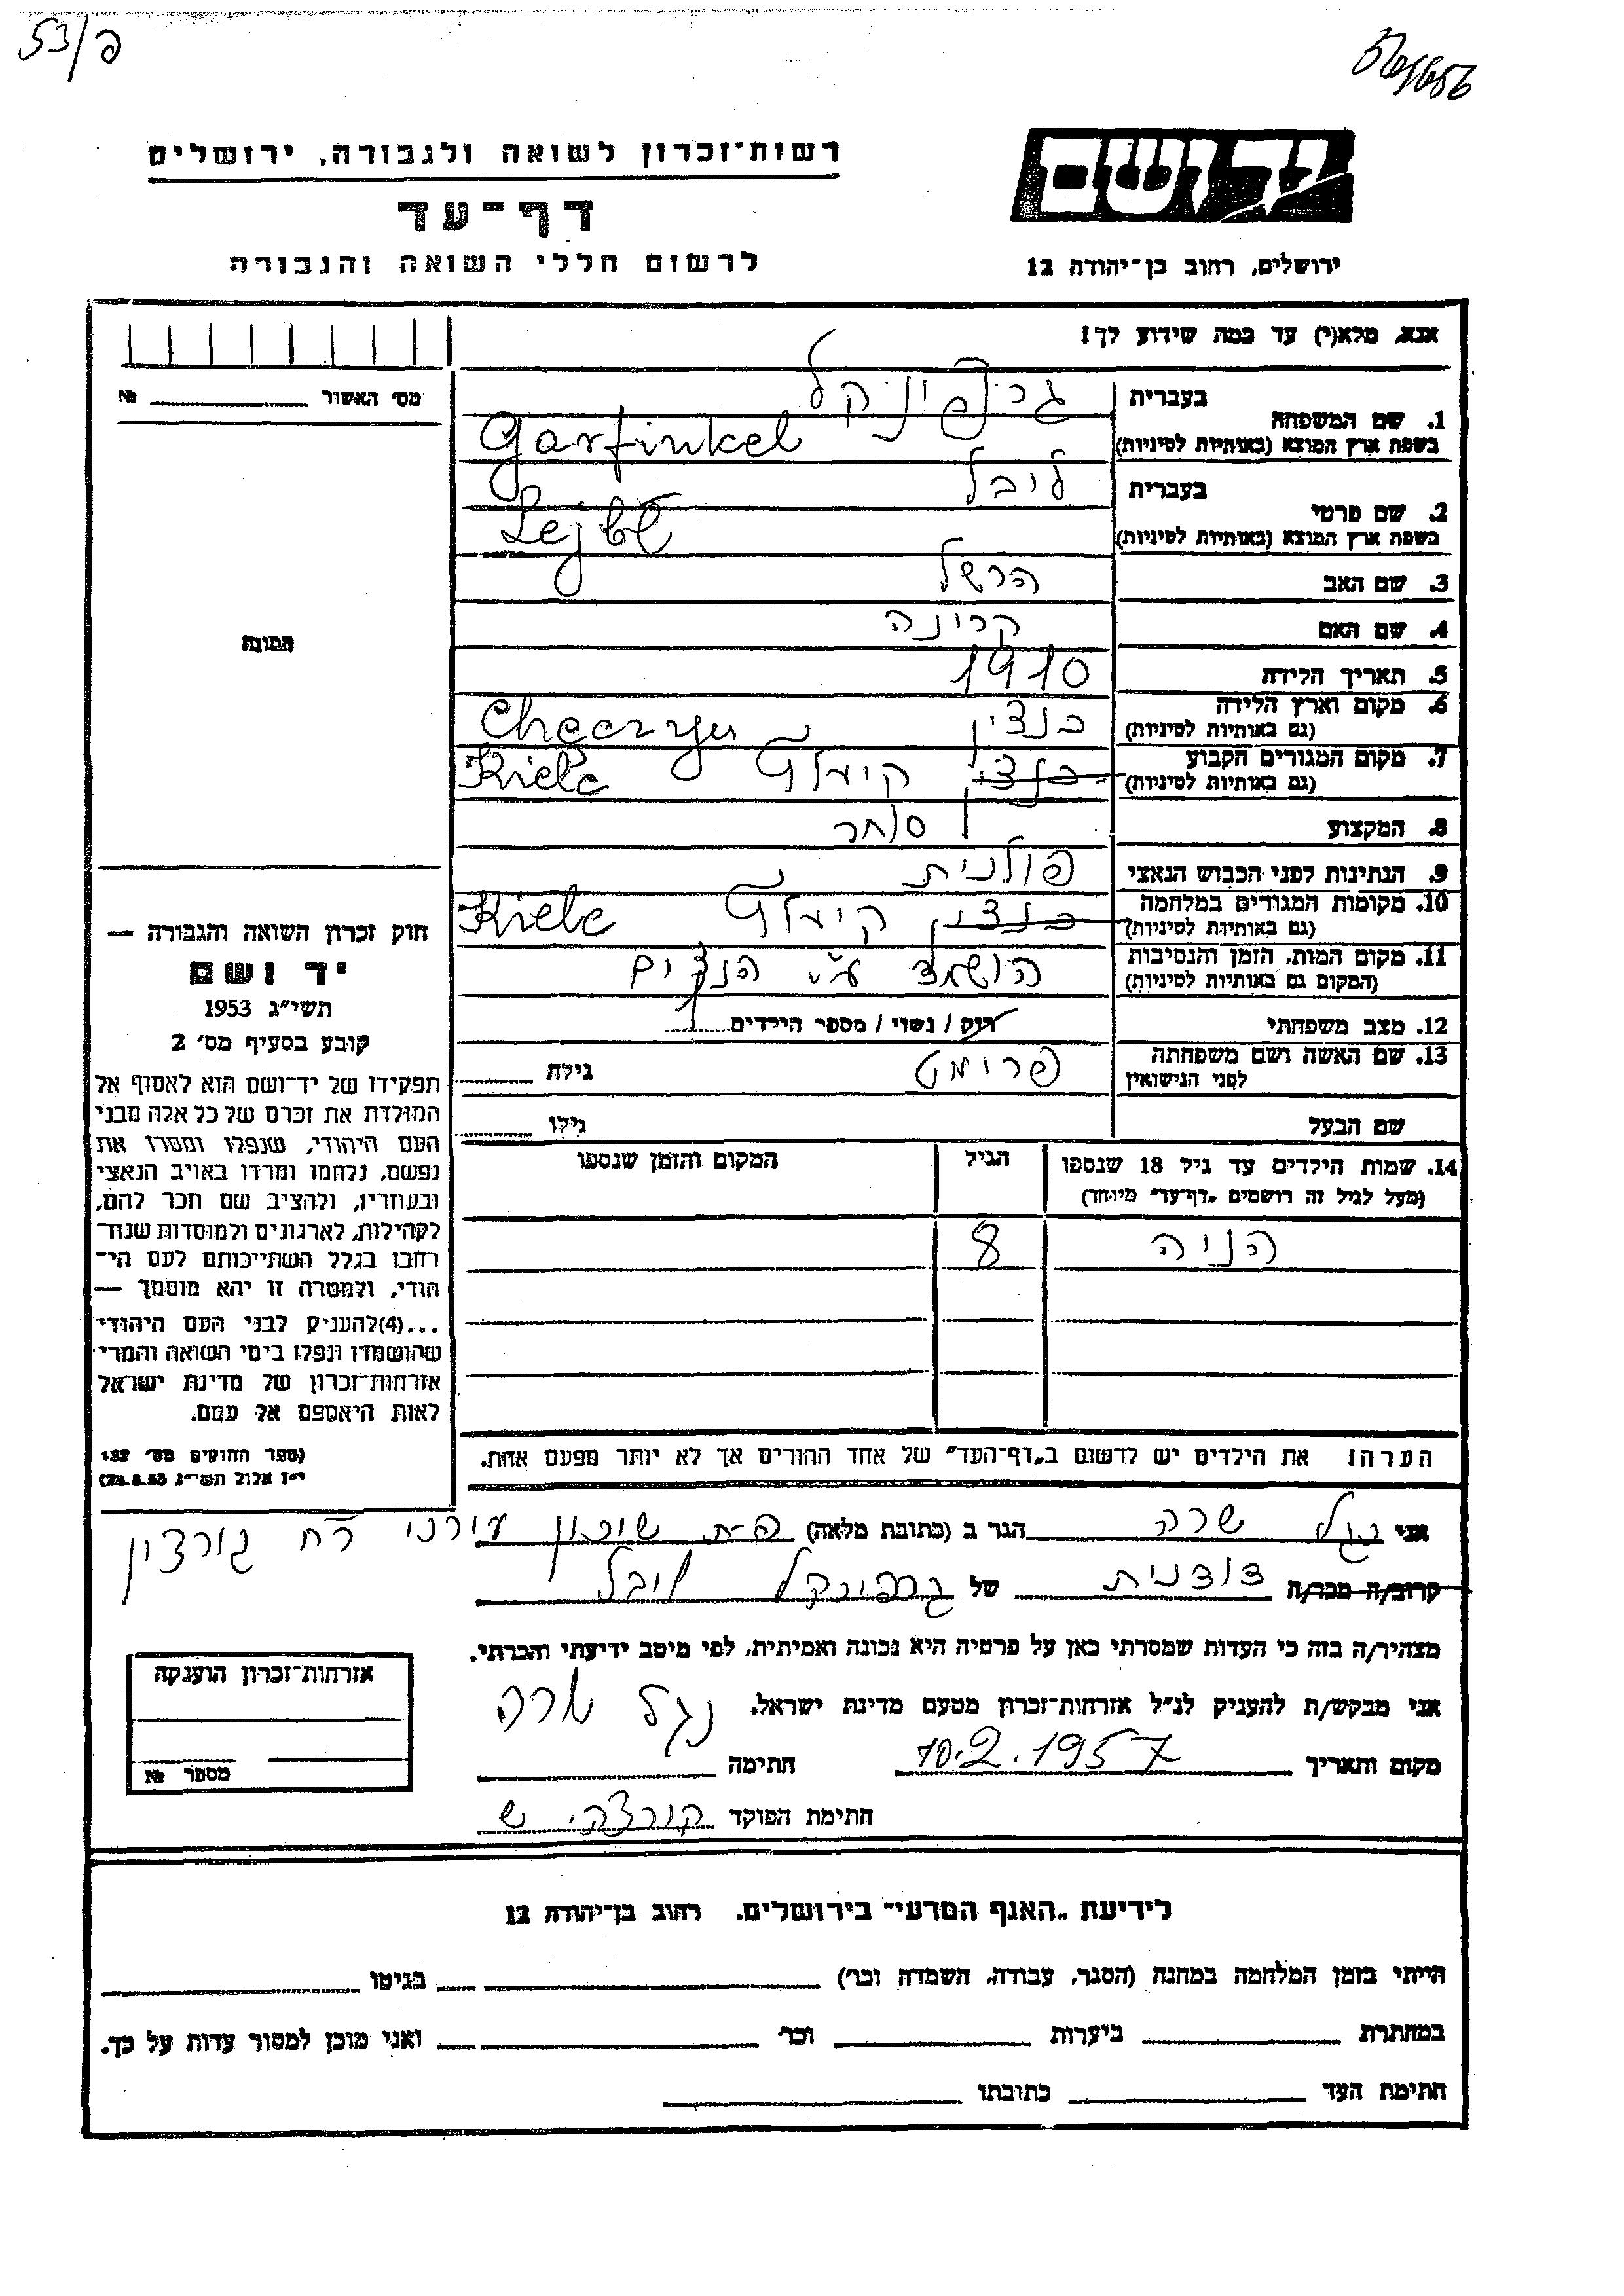 53/פ
רשות־זכרון לשואה ולגבורה, ירושלים
יד ושם
דף־עד
לרשום חללי השואה והגבורה
ירושלים, רחוב בן־יהודה 12
אנא, מלא(י) עד כמה שידוע לך!
מס׳ האשור № 
בעברית גרפינקל
1. שם המשפחה
בשפת ארץ המוצא (באותיות לטיניות) Garfinkel
בעברית ליבל
2. שם פרטי
בשפת ארץ המוצא (באותיות לטיניות)
3. שם האב הרשל
4. שם האם קרינה
5. תאריך הלידה 1910
6. מקום וארץ הלידה
(גם באותיות לטיניות)
7. מקום המגורים הקבוע Kielc
(גם באותיות לטיניות)
8. המקצוע סוחר
9. הנתינות לפני הכבוש הנאצי פולנית
10. מקומות המגורים במלחמה Kielc
(גם באותיות לטיניות)
11. מקום המות, הזמן והנסיבות הושמד ע״י הנצים
(המקום גם באותיות לטיניות)
12. מצב משפחתי רווק / נשוי / מספר הילדים 1
13. שם האשה ושם משפחתה פרומט גילה
לפני הנישואין
שם הבעל גילו
14. שמות הילדים עד גיל 18 שנספו הגיל המקום והזמן שנספו
(מעל לגיל זה רושמים „דף־עד״ מיוחד)
הניה 8
הערה! את הילדים יש לרשום ב„דף־העד״ של אחד ההורים אך לא יותר מפעם אחת.
תמונה
חוק זכרון השואה והגבורה —
יד ושם
תשי״ג 1953
קובע בסעיף מס׳ 2
תפקידו של יד־ושם הוא לאסוף אל
המולדת את זכרם של כל אלה מבני
העם היהודי, שנפלו ומסרו את
נפשם, נלחמו ומרדו באויב הנאצי
ובעוזריו, ולהציב שם וזכר להם,
לקהילות, לארגונים ולמוסדות שנח־
רבו בגלל השתייכותם לעם הי־
הודי, ולמטרה זו יהא מוסמך —
...(4)להעניק לבני העם היהודי
שהושמדו ונפלו בימי השואה והמרי
אזרחות־זכרון של מדינת ישראל
לאות היאספם אל עמם.
(ספר החוקים מס׳ 132
י״ז אלול תשי״ג 28.8.53)
אני נגל שרה הגר ב (כתובת מלאה) פ-ת שיכון עירני רח גורדון
קרוב/ה מכר/ה דודנית של גרפינקל ליבל
מצהיר/ה בזה כי העדות שמסרתי כאן על פרטיה היא נכונה ואמיתית, לפי מיטב ידיעתי והכרתי.
אני מבקש/ת להעניק לנ״ל אזרחות־זכרון מטעם מדינת ישראל.
מקום ותאריך 10.2.1957 חתימה נגל שרה
חתימת הפוקד
אזרחות־זכרון הוענקה
מספר №
לידיעת „האגף המדעי״ בירושלים, רחוב בן־יהודה 12
הייתי בזמן המלחמה במחנה (הסגר, עבודה, השמדה וכו׳) בגיטו
במחתרת ביערות וכו׳ ואני מוכן למסור עדות על כך.
חתימת העד כתובתו